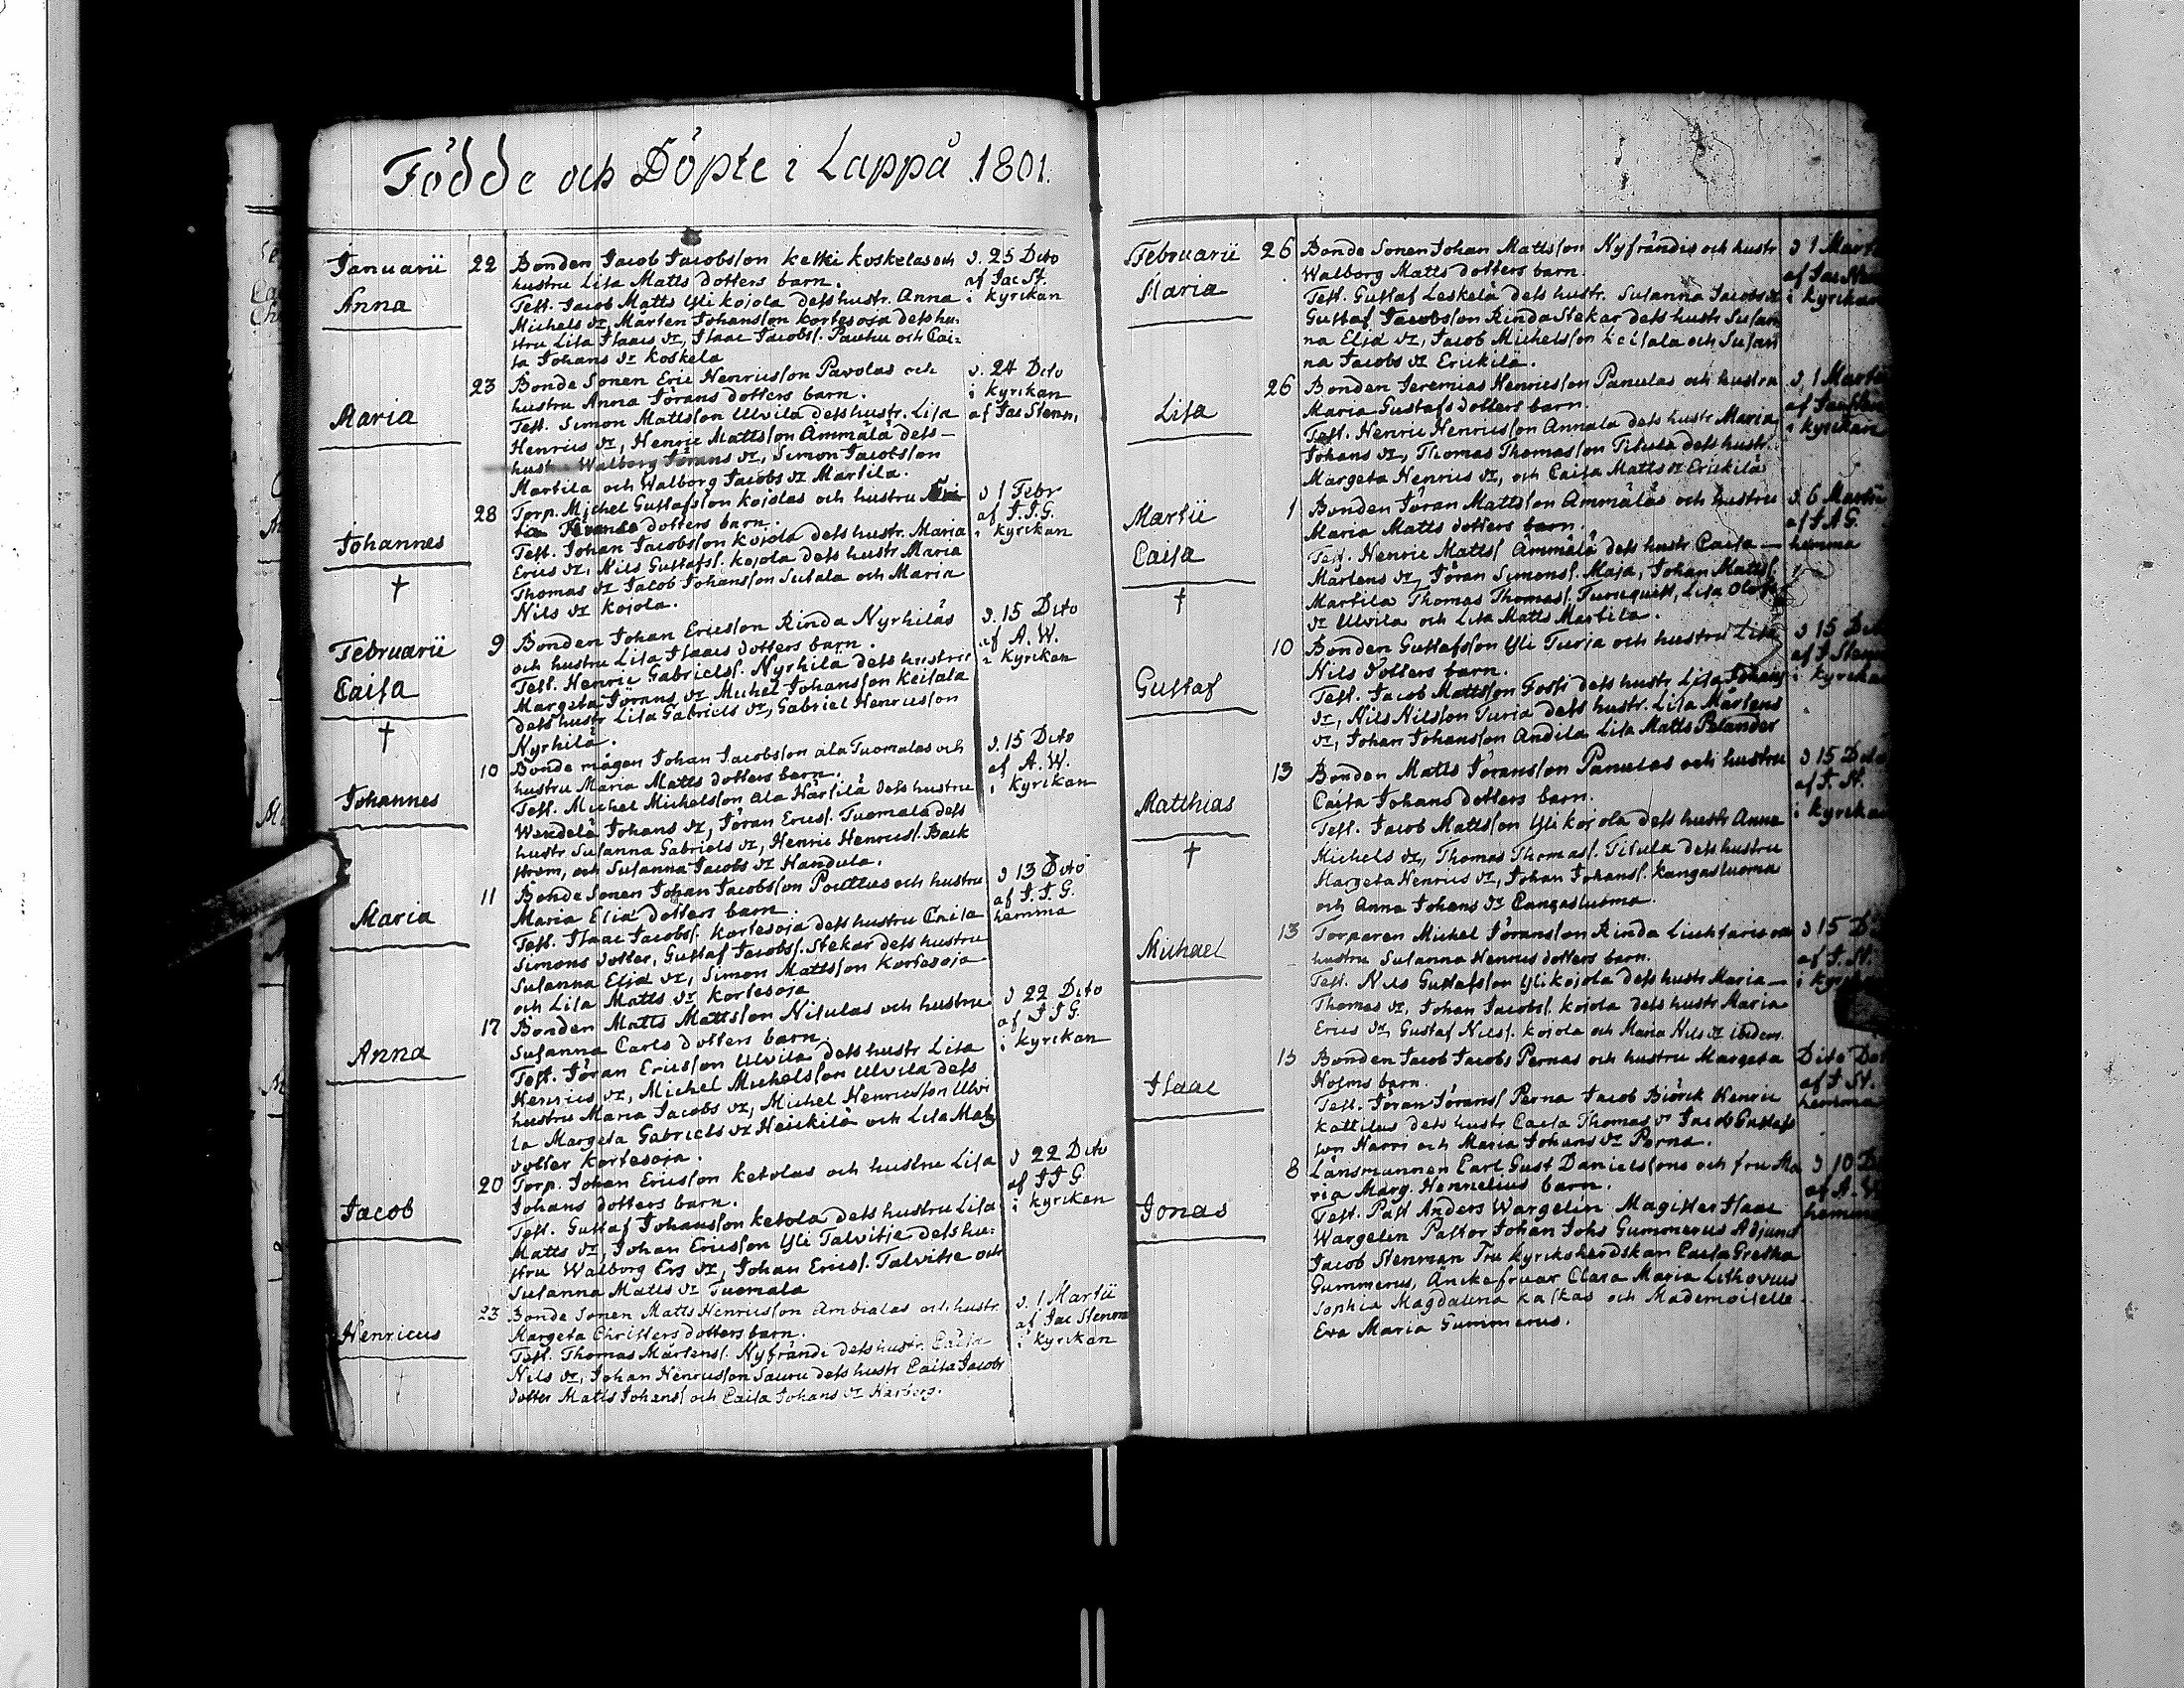 Födde och Döpte i Lappå 1801.
Januarii 22 Bonden Jacob Jacobsson Keski Koskelas och d. 25 Dito
hustru Lisa Matts dotters barn. af Jac St.
Anna Test. Jacob Matts Yli Kojola dess hustr. Anna i Kyrikan
Michels dr, Mårten Johansson Kortesoja dess hu-
stru Lisa Isaacs dr, Isaac Jacobss. Pauhu och Cai-
sa Johans dr Koskela
23 Bonde Sonen Eric Henricsson Pavolas och d. 24 Dito
hustru Anna Jörans dotters barn. i Kyrikan
Maria Test. Simon Mattsson Ulvila dess hustr. Lisa af Jac Stenm,
Henrics dr, Henric Mattsson Ämmälä dess
hustru Walborg Jörans dr, Simon Jacobsson
Martila och Walborg Jacobs dr Martila.
28 Torp. Michel Gustafsson Kojolas och hustru d 1 Febr
dotters barn. af J.J.G.
Johannes Test. Johan Jacobsson Kojola dess hustr. Maria i Kyrikan
Erics dr, Nils Gustafss. Kojola dess hustr Maria
† Thomas dr Jacob Johansson Sulala och Maria
Nils dr Kojola.
Februarii 9 Bonden Johan Ericsson Rinda Nyrhiläs d. 15 Dito
och hustru Lisa Isaacs dotters barn. af A. W.
Caisa Test. Henric Gabrielss. Nyrhilä dess hustru i Kyrikan
Margeta Jörans dr Michel Johansson Keisala
† dess hustr Lisa Gabriels dr, Gabriel Henricsson
Nyrhilä.
10 Bonde mågen Johan Jacobsson ala Tuomalas och d. 15 Dito
hustru Maria Matts dotters barn. af A. W.
Johannes Test. Michel Michelsson ala Härsilä dess hustru i Kyrikan
Wendela Johans dr, Jöran Ericss. Tuomala dess
hustr Susanna Gabriels dr, Henric Henricss. Back
ström, och Susanna Jacobs dr Handula.
11 Bonde Sonen Johan Jacobsson Pouttus och hustru d 13 Dito
Maria Eliæ dotters barn. af J. J. G.
Maria Test. Isaac Jacobss. Kortesoja dess hustru Caisa hemma
Simons dotter, Gustaf Jacobss. Stekar dess hustru
Susanna Eliæ dr, Simon Mattsson Kortesoja
och Lisa Matts dr Kortesoja
17 Bonden Matts Mattsson Nisulas och hustru d 22 Dito
Susanna Carls dotters barn. af J J G.
Anna Test. Jöran Ericsson Ulvila dess hustr Lisa i Kyrikan
Henrics dr, Michel Michelsson Ulvila dess
hustru Maria Jacobs dr, Michel Henricsson Ulvi
la Margeta Gabriels dr Heickilä och Lisa Mats
dotter Kortesoja.
20 Torp. Johan Ericsson Ketolas och hustru Lisa d 22 Dito
Johans dotters barn. af J J G
Jacob Test. Gustaf Johansson Ketola dess hustru Lisa i Kyrikan
Matts dr, Johan Ericsson Yli Talvitje dess hu-
stru Walborg Ers dr, Johan Ericss. Talvitie och
Susanna Matts dr Tuomala
23 Bonde Sonen Matts Henricsson Ambialas och hustr d. 1 Martii
Margeta Christers dotters barn. af Jac Stenm
Henricus Test. Thomas Mårtenss. Nyfrände dess hustr. Caisa i Kyrikan
† Nils dr, Johan Henricsson Sauru dess hustr Caisa Jacobs
dotter Matts Johanss och Caisa Johans dr Harberg.
Februarii 26 Bonde Sonen Johan Mattsson Nyfrändis och hustr d 1 Mart
Walborg Matts dotters barn. af Jac
Maria Test. Gustaf Leskelä dess hustr. Susanna Jacobs dr i Kyrikan
Gustaf Jacobsson Rinda Stekar dess hustr Susan
na Eliæ dr, Jacob Michelsson Keisala och Susan
na Jacobs dr Erickilä.
26 Bonden Jeremias Henricsson Panulas och hustru d, 1 Martii
Maria Gustafs dotters barn. af
Lisa Test. Henric Henricsson Annala dess hustr Maria i Kyrikan
Johans dr, Thomas Thomasson Titula dess hustr.
Margeta Henrics dr, och Caisa Matts dr Erickilä
Martii 1 Bonden Jöran Mattsson Ammäläs och hustru d. 6 Martii
Maria Matts dotters barn. af J A G.
Caisa Test. Henric Mattss Ämmälä dess hustr Caisa hemma
Mårtens dr, Jöran Simonss. Maja, Johan Mattss.
† Martila Thomas Thomass. Turnquist, Lisa Olofs
dr Ulvila och Lisa Matts Martila.
10 Bonden Gustafsson Yli Turja och hustru Lisa d 15 Dito
Nils dotters barn. af J Stenm
Gustaf Test. Jacob Mattsson Fosti dess hustr Lisa Johans i Kyrikan
dr, Nils Nilsson Turja dess hustr. Lisa Mårtens
dr, Johan Johansson Andila Lisa Matts Pelander
13 Bonden Matts Jöransson Panulas och hustru d 15 Dito
Caisa Johans dotters barn. af J. St.
Matthias Test. Jacob Mattsson Yli Kojola dess hustr Anna i Kyrikan
† Michels dr, Thomas Thomass. Titula dess hustru
Margeta Henrics dr, Johan Johanss. Kangasluoma
och Anna Johans dr Cangasluoma.
13 Torparen Michel Jöransson Rinda d 15 D
Michael hustru Susanna Henrics dotters barn. af J. St.
Test. Nils Gustafsson Yli Kojola dess hustr Maria i
Thomas dr, Johan Jacobss. Kojola dess hustr Maria
Erics dr, Gustaf Nilss. Kojola och Maria Nils dr ibidem.
15 Bonden Jacob Jacobs Pernas och hustru Margeta Dito
Holms barn. af J St.
Isaac Test. Jöran Jöranss Perna Jacob Biörck Henric hemma
Kattilus dess hustr Caisa Thomas dr Jacob Gustafs
son Harri och Maria Johans dr Perna.
8 Länsmannen Carl Gust Danielssons och fru Ma d 10
ria Marg. Hennelius barn. af A. W
Jonas Test. Past Anders Wargelin Magister Isaac hemma
Wargelin Pastor Johan Johs Gummerus Adjunct
Jacob Stenman Fru Kyrkoherdskan Caisa Gretha
Gummerus, Änckefruar Clara Maria Lithovius
Sophia Magdalena Kaskas och Mademoiselle
Eva Maria Gummerus.